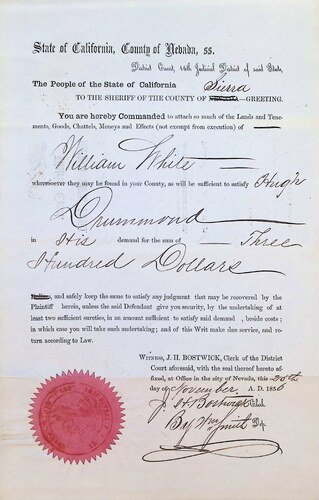 State of California, County of Nevada, ss.
District Court, 14th Judicial District of said State,
The People of the State of California
Sierra
TO THE SHERIFF OF THE COUNTY OF Nevada—GREETING.
You are hereby Commanded to attach so much of the Lands and Tene-
ments, Goods, Chattels, Moneys and Effects (not exempt from execution) of
William White
wheresoever they may be found in your County, as will be sufficient to satisfy Hugh
Drummond
in His demand for the sum of Three
Hundred Dollars
and safely keep the same to satisfy any judgment that may be recovered by the
Plaintiff herein, unless the said Defendant give you security, by the undertaking of at
least two sufficient sureties, in an amount sufficient to satisfy said demand, beside costs;
in which case you will take such undertaking; and of this Writ make due service, and re-
turn according to Law.
WITNESS, J. H. BOSTWICK, Clerk of the District
Court aforesaid, with the seal thereof hereto af-
fixed, at Office in the city of Nevada, this 20th
day of November A. D. 1856
J. H. Bostwick Clerk
By Wm Smith Dp.